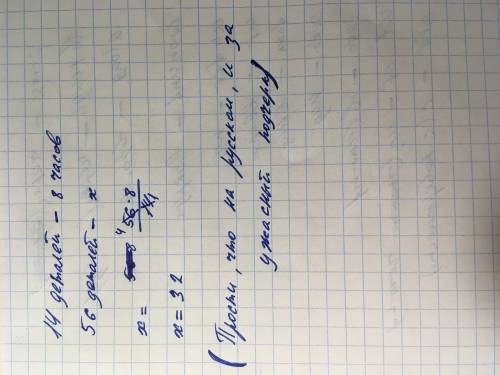 14 деталей - 8 часов
56 деталей - x
x = 4 56·8 / 14 1
x = 32
(Прости, что на русском, и за
ужасный подчерк)